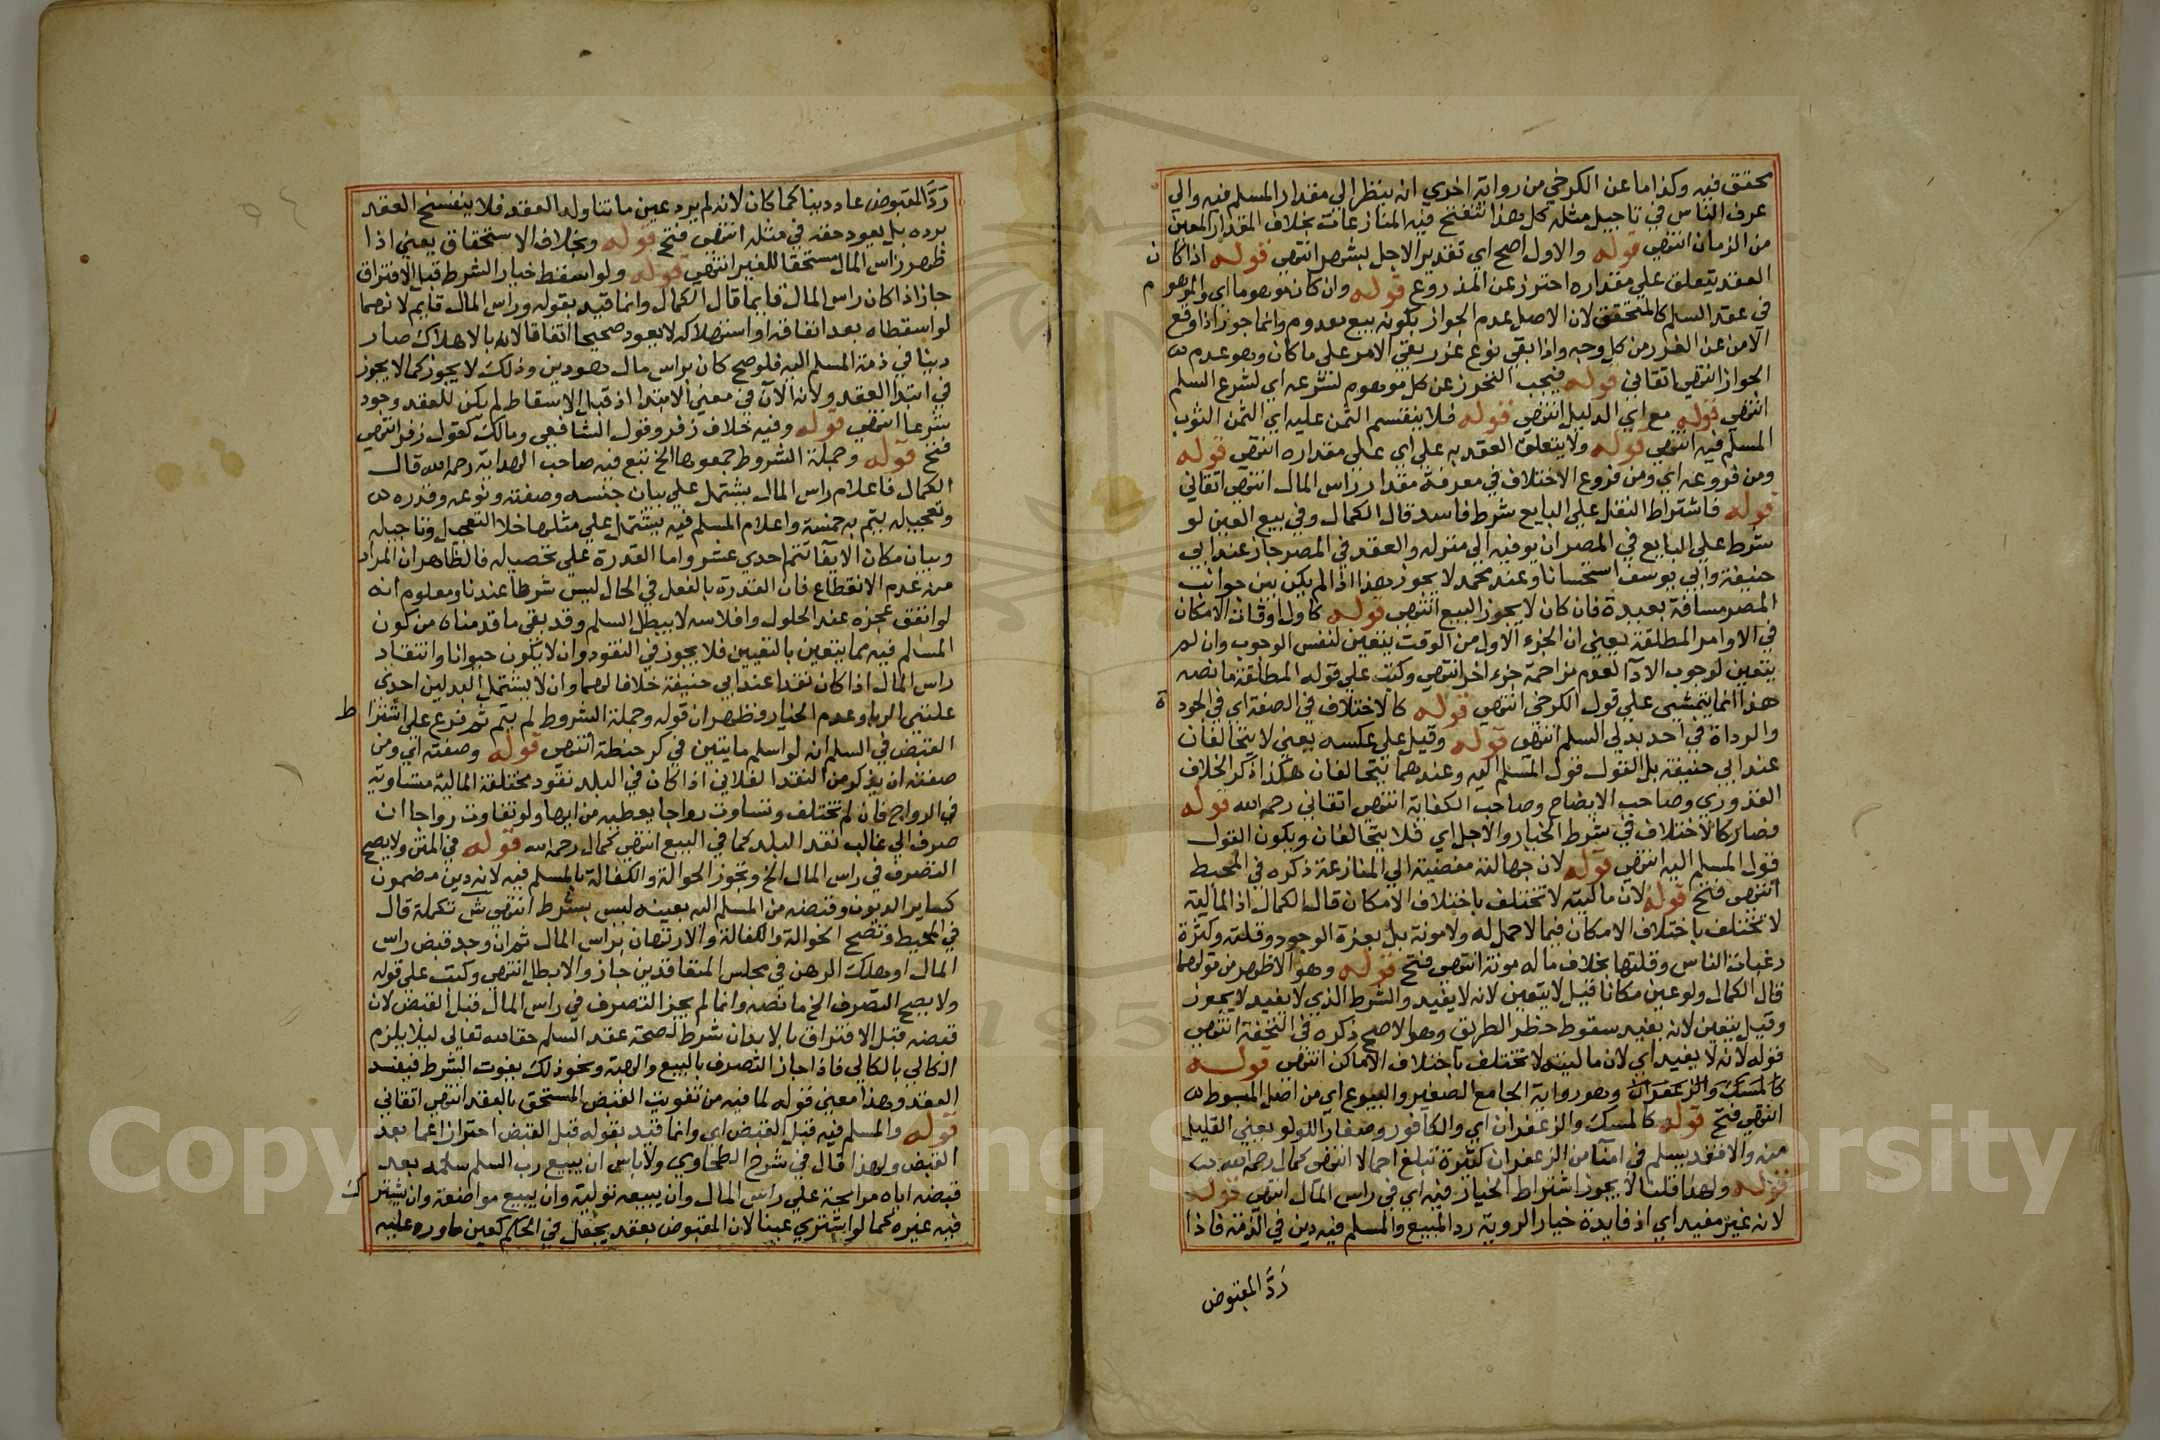 محقق فيه وكذا ما عن الكرخي من رواية اخري انه ينظر الي مقدار المسلم فيه والي
عرف الناس في تاجيل مثله كل هذا تنفتح فيه المنازعات بخلاف المقدار المعين
من الزمان انتهى قوله والاول اصح اي تقدير الاجل بشهر انتهى قوله اذا كان
العقد يتعلق علي مقداره احترز عن المذروع قوله وان كان موهوما اي والموهوم
في عقد السلم كالمتحقق لان الاصل عدم الجواز بكونه بيع معدوم وانما جوز اذا وقع
الامن عن الغرر من كل وجه واذا بقي نوع غرر بقي الامر علي ما كان وهو عدم
الجواز انتهى اتقاني قوله فيجب التحرز عن كل موهوم لشرعه اي لشرع السلم
انتهى قوله مع اي الدليل انتهى قوله فلا ينقسم الثمن عليه اي الثمن الثوب
المسلم فيه انتهى قوله ولا يتعلق العقد به علي اي على مقداره انتهى قوله
ومن فروعه اي ومن فروع الاختلاف في معرفة مقدار راس المال انتهى اتقاني
قوله فاشتراط النقل علي البايع شرط فاسد قال الكمال وفي بيع العين لو
شرط علي البايع في المصر ان يوفيه الي منزله والعقد في المصر جاز عند ابي
حنيفة وابي يوسف استحسانا وعند محمد لا يجوز هذا اذا لم يكن بين جوانب
المصر مسافة بعيدة فان كان لا يجوز البيع انتهى قوله كاول اوقات الامكان
في الاوامر المطلقة يعني ان الجزء الاول من الوقت يتعين لنفس الوجوب وان لم
يتعين لوجوب الادآ لعدم مزاحمة جزء اخر انتهى وكتب علي قوله المطلقة ما نصه
هذا انما يتمشى علي قول الكرخي انتهى قوله كالاختلاف في الصفة اي في الجودة
والرداة في احد بدلي السلم انتهى قوله وقيل علي عكسه يعني لا يتحالفان
عند ابي حنيفة بل القول قول المسلم اليه وعندهما يتحالفان هكذا ذكر الخلاف
القدوري وصاحب الايضاح وصاحب الكفاية انتهى اتقاني رحمه الله قوله
فصار كالاختلاف في شرط الخيار والاجل اي فلا يتحالفان ويكون القول
قول المسلم اليه انتهى قوله لان جهالته مفضية الي المنازعة ذكره في المحيط
انتهى فتح قوله لان ماليته لا تختلف باختلاف الامكان قال الكمال اذ المالية
لا تختلف باختلاف الامكان فيما لا حمل له ولا مونة بل بعزة الوجود وقلته وكثرة
رغبات الناس وقلتها بخلاف ما له مونة انتهى فتح قوله وهو الاظهر من قولهما
قال الكمال ولو عين مكانا قيل لا يتعين لانه لا يفيد والشرط الذي لا يفيد لا يجوز
وقيل يتعين لانه يفيد سقوط خطر الطريق وهو الاصح ذكره في التحفة انتهى
قوله لانه لا يفيد اي لان ماليته لا تختلف باختلاف الاماكن انتهى قوله
كالمسك والزعفران وهو رواية الجامع الصغير والبيوع اي من اصل المبسوط
انتهى فتح قوله كالمسك والزعفران اي والكافور وصغار اللولو يعني القليل
منه والا فقد يسلم في امنآ من الزعفران كثيرة تبلغ احمالا انتهى كمال رحمه الله
قوله ولهذا قلنا لا يجوز اشتراط الخيار فيه اي في راس المال انتهى قوله
لانه غير مفيد اي اذ فايدة خيار الروية رد المبيع والمسلم فيه دين في الذمة فاذا
رَدَّ المقبوض
رَدَّ المقبوض عاد دينا كما كان لانه لم يرد عين ما تناوله العقد فلا ينفسخ العقد
برده بل يعود حقه في مثله انتهى فتح قوله وبخلاف الاستحقاق يعني اذا
ظهر راس المال مستحقا للغير انتهى قوله ولو اسقط خيار الشرط قبل الافتراق
جاز اذا كان راس المال قايما قال الكمال وانما قيد بقوله وراس المال قايم لانهما
لو اسقطاه بعد انفاقه او استهلاكه لا يعود صحيحا اتفاقا لانه بالاهلاك صار
دينا في ذمة المسلم اليه فلو صح كان براس مال هو دين وذلك لا يجوز كما لا يجوز
في ابتدا العقد ولانه الآن في معني الابتدا اذ قبل الاسقاط لم يكن للعقد وجود
شرعا انتهى قوله وفيه خلاف زفر وقول الشافعي ومالك كقول زفر انتهى
فتح قوله وجملة الشروط جمعوها الخ تبع فيه صاحب الهداية رحمه الله قال
الكمال فاعلام راس المال يشتمل علي بيان جنسه وصفته ونوعه وقدره
وتعجيله يتم به خمسة واعلام المسلم فيه يشتمل علي مثلها خلا التعجيل وتاجيله
وبيان مكان الايفآ تتم احدي عشر واما القدرة علي تحصيله فالظاهر ان المراد
منه عدم الانقطاع فان القدرة بالفعل في الحال ليس شرطا عندنا ومعلوم انه
لو اتفق عجزه عند الحلول وافلاسه لا يبطل السلم وقد بقي ما قدمناه من كون
المسلم فيه مما يتعين بالتعيين فلا يجوز في النقود وان لا يكون حيوانا وانتقاد
راس المال اذا كان نقدا عند ابي حنيفة خلافا لهما وان لا يشتمل البدلين احدي
علتي الربا وعدم الخيار فظهر ان قوله وجملة الشروط لم يتم ثم فرع علي اشتراط
القبض في السلم انه لو اسلم مايتين في كر حنطة انتهى قوله وصفته اي ومن
صفته ان يذكر من النقد الفلاني اذا كان في البلد نقود مختلفة المالية متساوية
في الرواج فان لم تختلف وتساوت رواجا يعطيه من ايها ولو تفاوت رواجا
صرف الي غالب نقد البلد كما في البيع انتهى كمال رحمه الله قوله في المتن ولا يصح
التصرف في راس المال الخ وتجوز الحوالة والكفالة بالمسلم فيه لانه دين مضمون
كساير الديون وقبضه من المسلم اليه بعينه ليس بشرط انتهى ش تكملة قال
في المحيط وتصح الحوالة والكفالة والارتهان براس المال ثم ان وجد قبض راس
المال او هلك الرهن في مجلس المتعاقدين جاز والا بطل انتهى وكتب علي قوله
ولا يصح التصرف الخ ما نصه وانما لم يجز التصرف في راس المال قبل القبض لان
قبضه قبل الافتراق بالابدان شرط لصحة عقد السلم حقا لله تعالي ليلا يلزم
الكالي بالكالي فاذا جاز التصرف بالبيع والهبة ونحو ذلك يفوت الشرط فيفسد
العقد وهذا معني قوله لما فيه من تفويت القبض المستحق بالعقد انتهى اتقاني
قوله والمسلم فيه قبل القبض اي وانما قيد بقوله قبل القبض احترازا عما بعد
القبض ولهذا قال في شرح الطحاوي ولا باس ان يبيع رب السلم سلمه بعد
قبضه اياه مرابحة علي راس المال وان يبيعه تولية وان يبيع مواضعة وان يشترك
فيه غيره كما لو اشتري عينا لان المقبوض بعقد يجعل في الحكم كعين ما ورد عليه